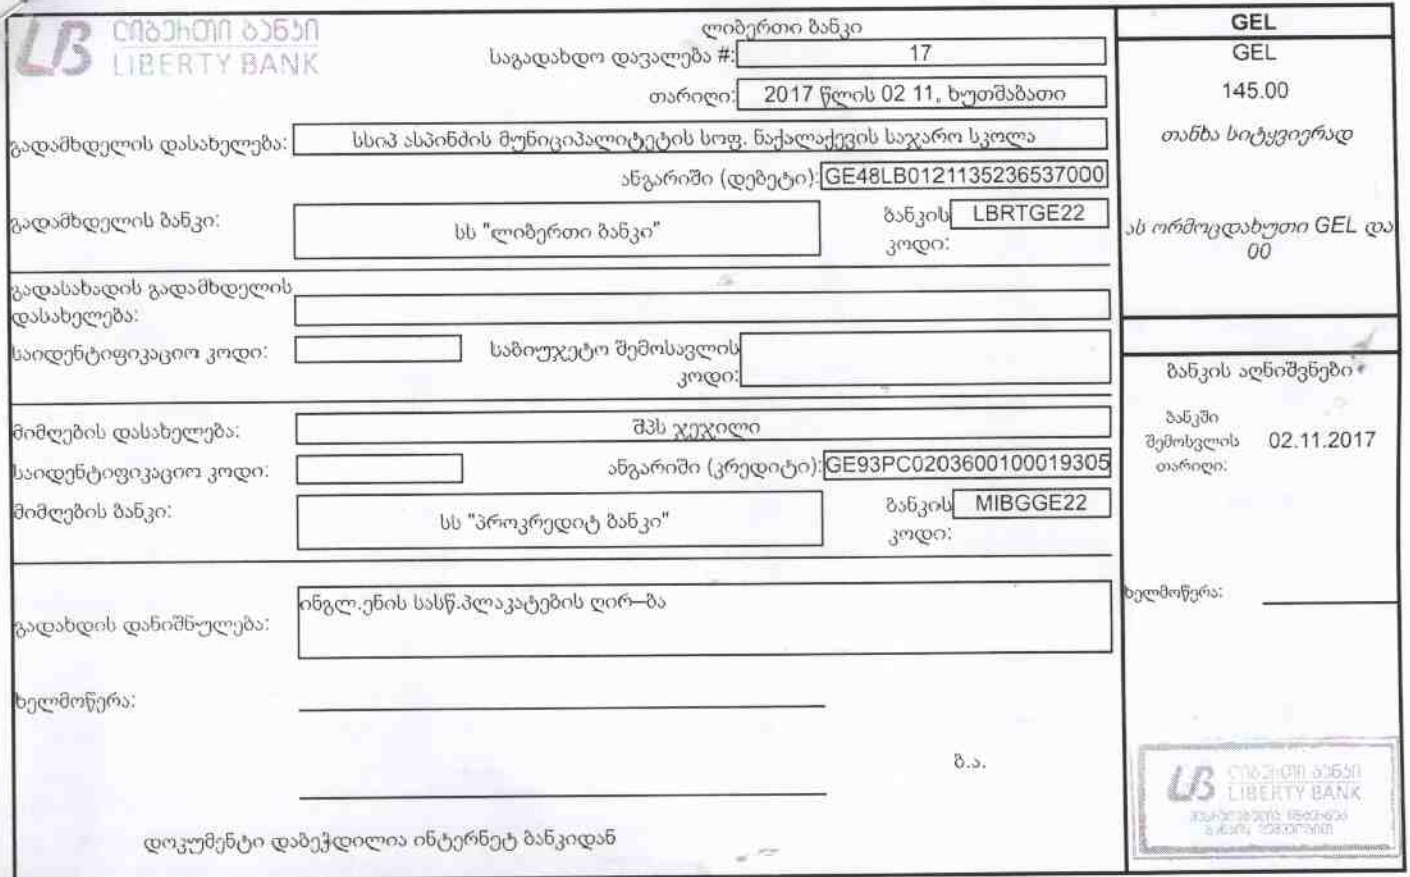 ლიბერთი ბანკი
LIBERTY BANK
ლიბერთი ბანკი
საგადახდო დავალება #: 17
თარიღი: 2017 წლის 02 11, ხუთშაბათი
გადამხდელის დასახელება: სსიპ ასპინძის მუნიციპალიტეტის სოფ. ნაქალაქევის საჯარო სკოლა
ანგარიში (დებეტი): GE48LB0121135236537000
გადამხდელის ბანკი: სს "ლიბერთი ბანკი" ბანკის LBRTGE22
კოდი:
გადასახადის გადამხდელის
დასახელება:
საიდენტიფიკაციო კოდი: საბიუჯეტო შემოსავლის
კოდი:
მიმღების დასახელება: შპს ჯეჯილი
საიდენტიფიკაციო კოდი: ანგარიში (კრედიტი): GE93PC0203600100019305
მიმღების ბანკი: სს "პროკრედიტ ბანკი" ბანკის MIBGGE22
კოდი:
ინგლ.ენის სასწ.პლაკატების ღირ–ბა
გადახდის დანიშნულება:
ხელმოწერა:
ბ.ა.
დოკუმენტი დაბეჭდილია ინტერნეტ ბანკიდან
GEL
GEL
145.00
თანხა სიტყვიერად
ას ორმოცდახუთი GEL და
00
ბანკის აღნიშვნები
ბანკში
შემოსვლის 02.11.2017
თარიღი:
ხელმოწერა:
LB ლიბერთი ბანკი
LIBERTY BANK